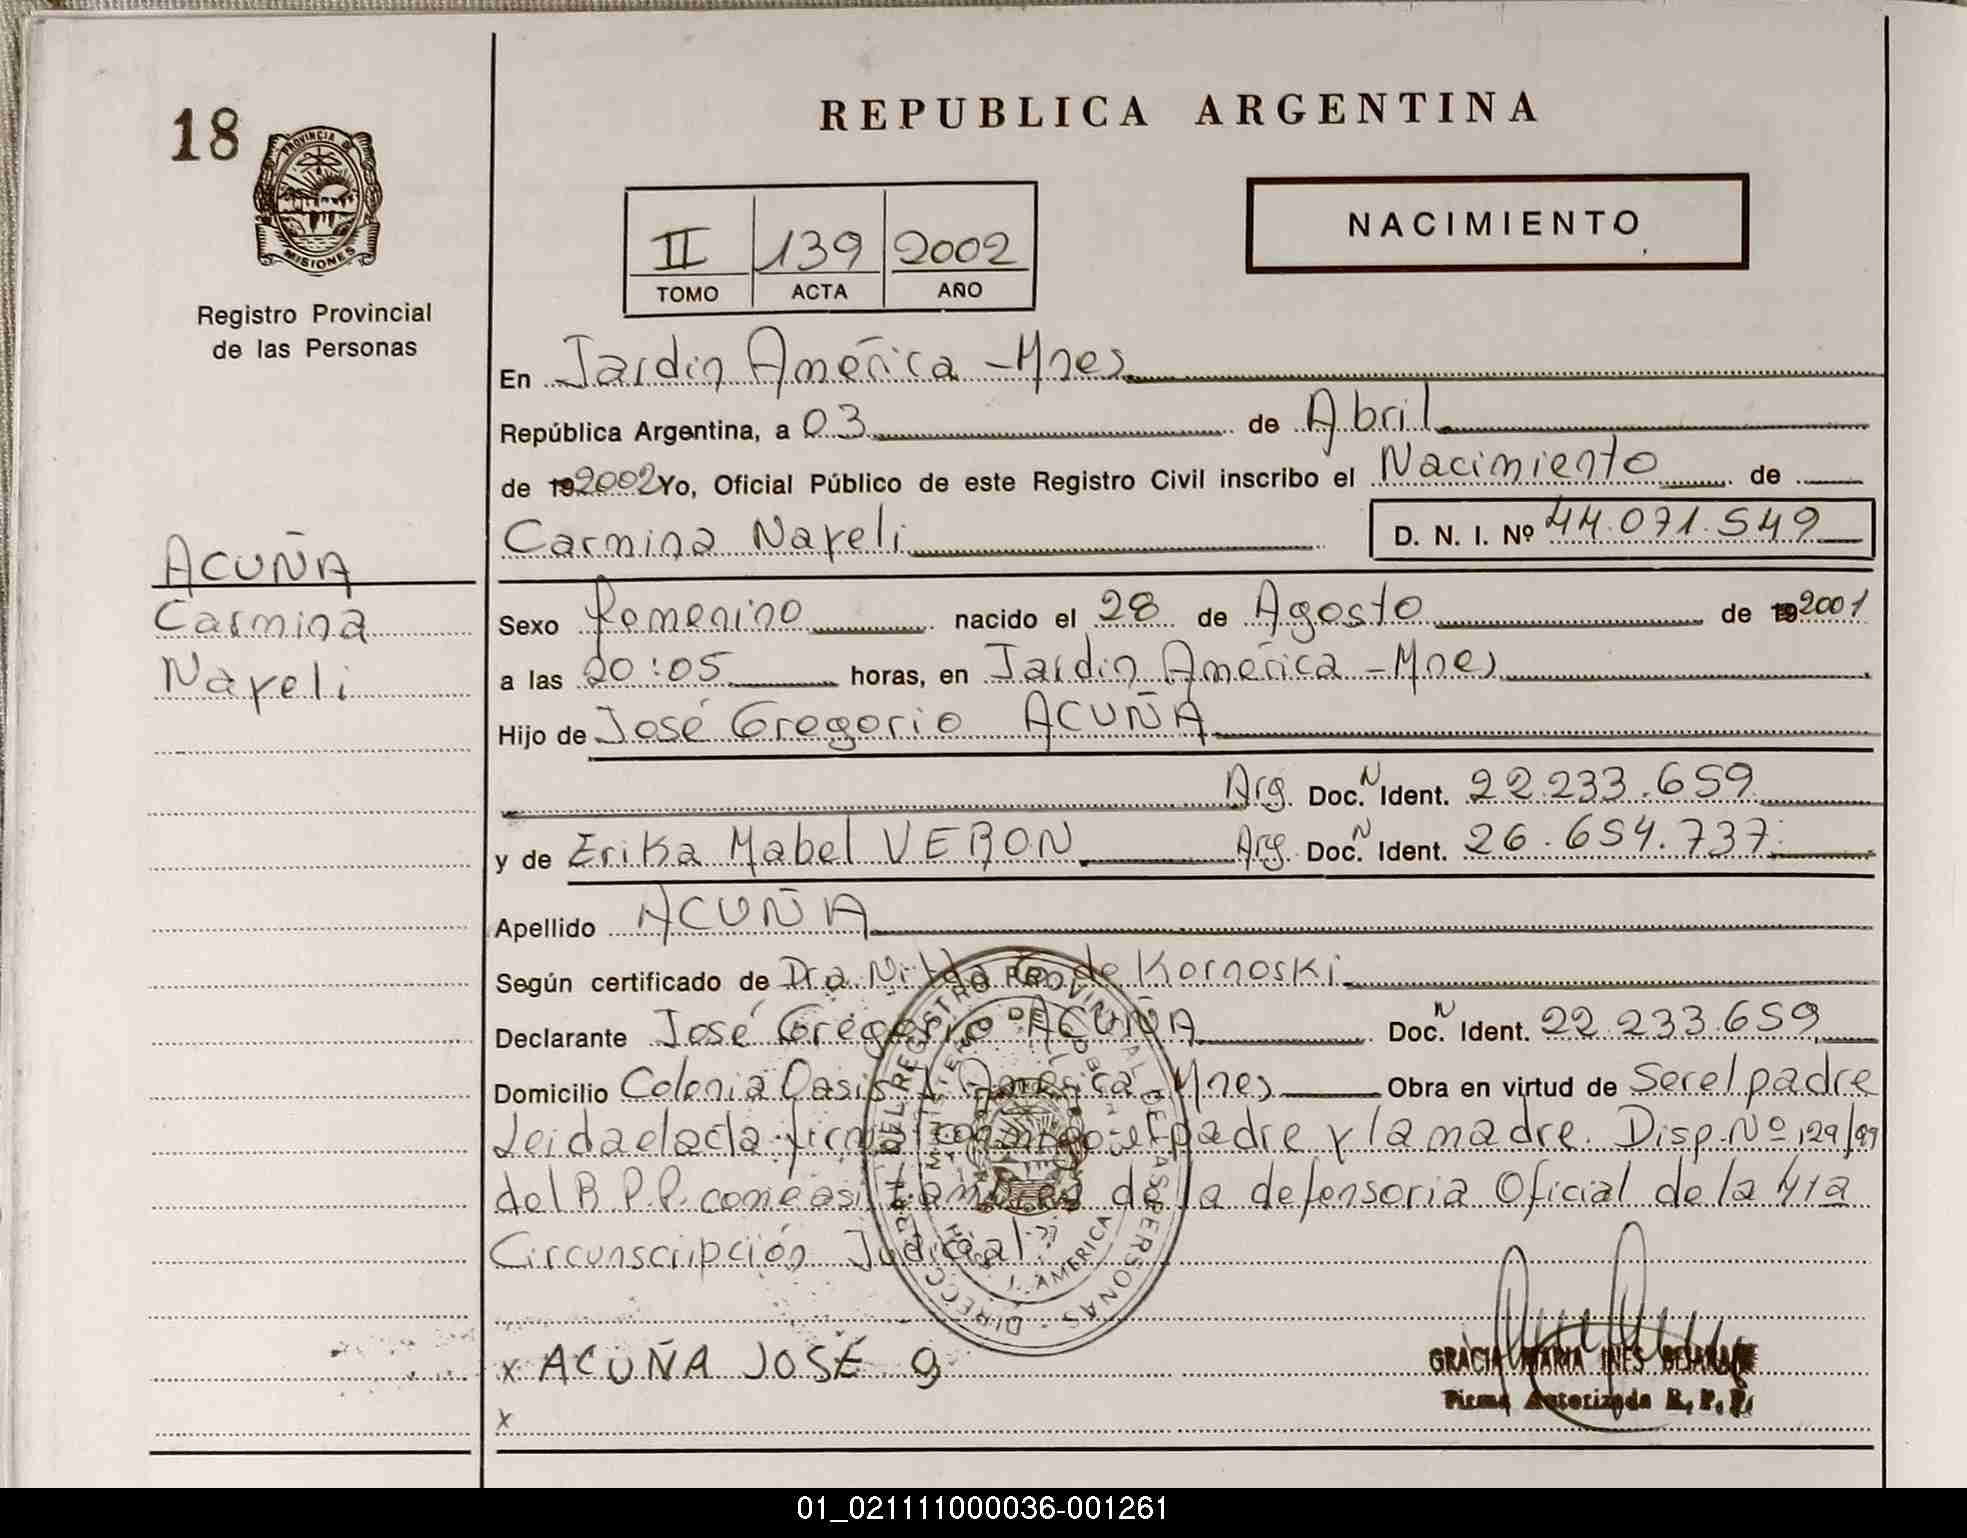 18
PROVINCIA DE
MISIONES
Registro Provincial
de las Personas
ACUÑA
Carmina
Nayeli
REPUBLICA ARGENTINA
II 139 2002
TOMO ACTA AÑO
NACIMIENTO
En Jardin América - Mnes
República Argentina, a 03 de Abril
de 192002 Yo, Oficial Público de este Registro Civil inscribo el Nacimiento de
Carmina Nayeli D. N. I. Nº 44.071.549
Sexo Femenino nacido el 28 de Agosto de 192001
a las 20:05 horas, en Jardin América - Mnes
Hijo de José Gregorio ACUÑA
Arg. Doc. N Ident. 22.233.659
y de Erika Mabel VERON Arg. Doc. N Ident. 26.654.737
Apellido ACUÑA
Según certificado de Dra Nilda G. de Kornoski
Declarante José Gregorio ACUÑA Doc. N Ident. 22.233.659
Domicilio Colonia Oasis J. América Mnes Obra en virtud de Ser el padre
Leida el acta firma conmigo el padre y la madre. Disp. Nº 129/99
del R.P.P. de la defensoria Oficial de la 4ta
Circunscripción Judicial
DIRECC. GRAL DEL REGISTRO PROVINCIAL DE LAS PERSONAS
MINISTERIO DE
J. AMERICA
x ACUÑA JOSÉ g
x
GRACIA MARIA INES
Firma Autorizada R. P. P.
01_021111000036-001261